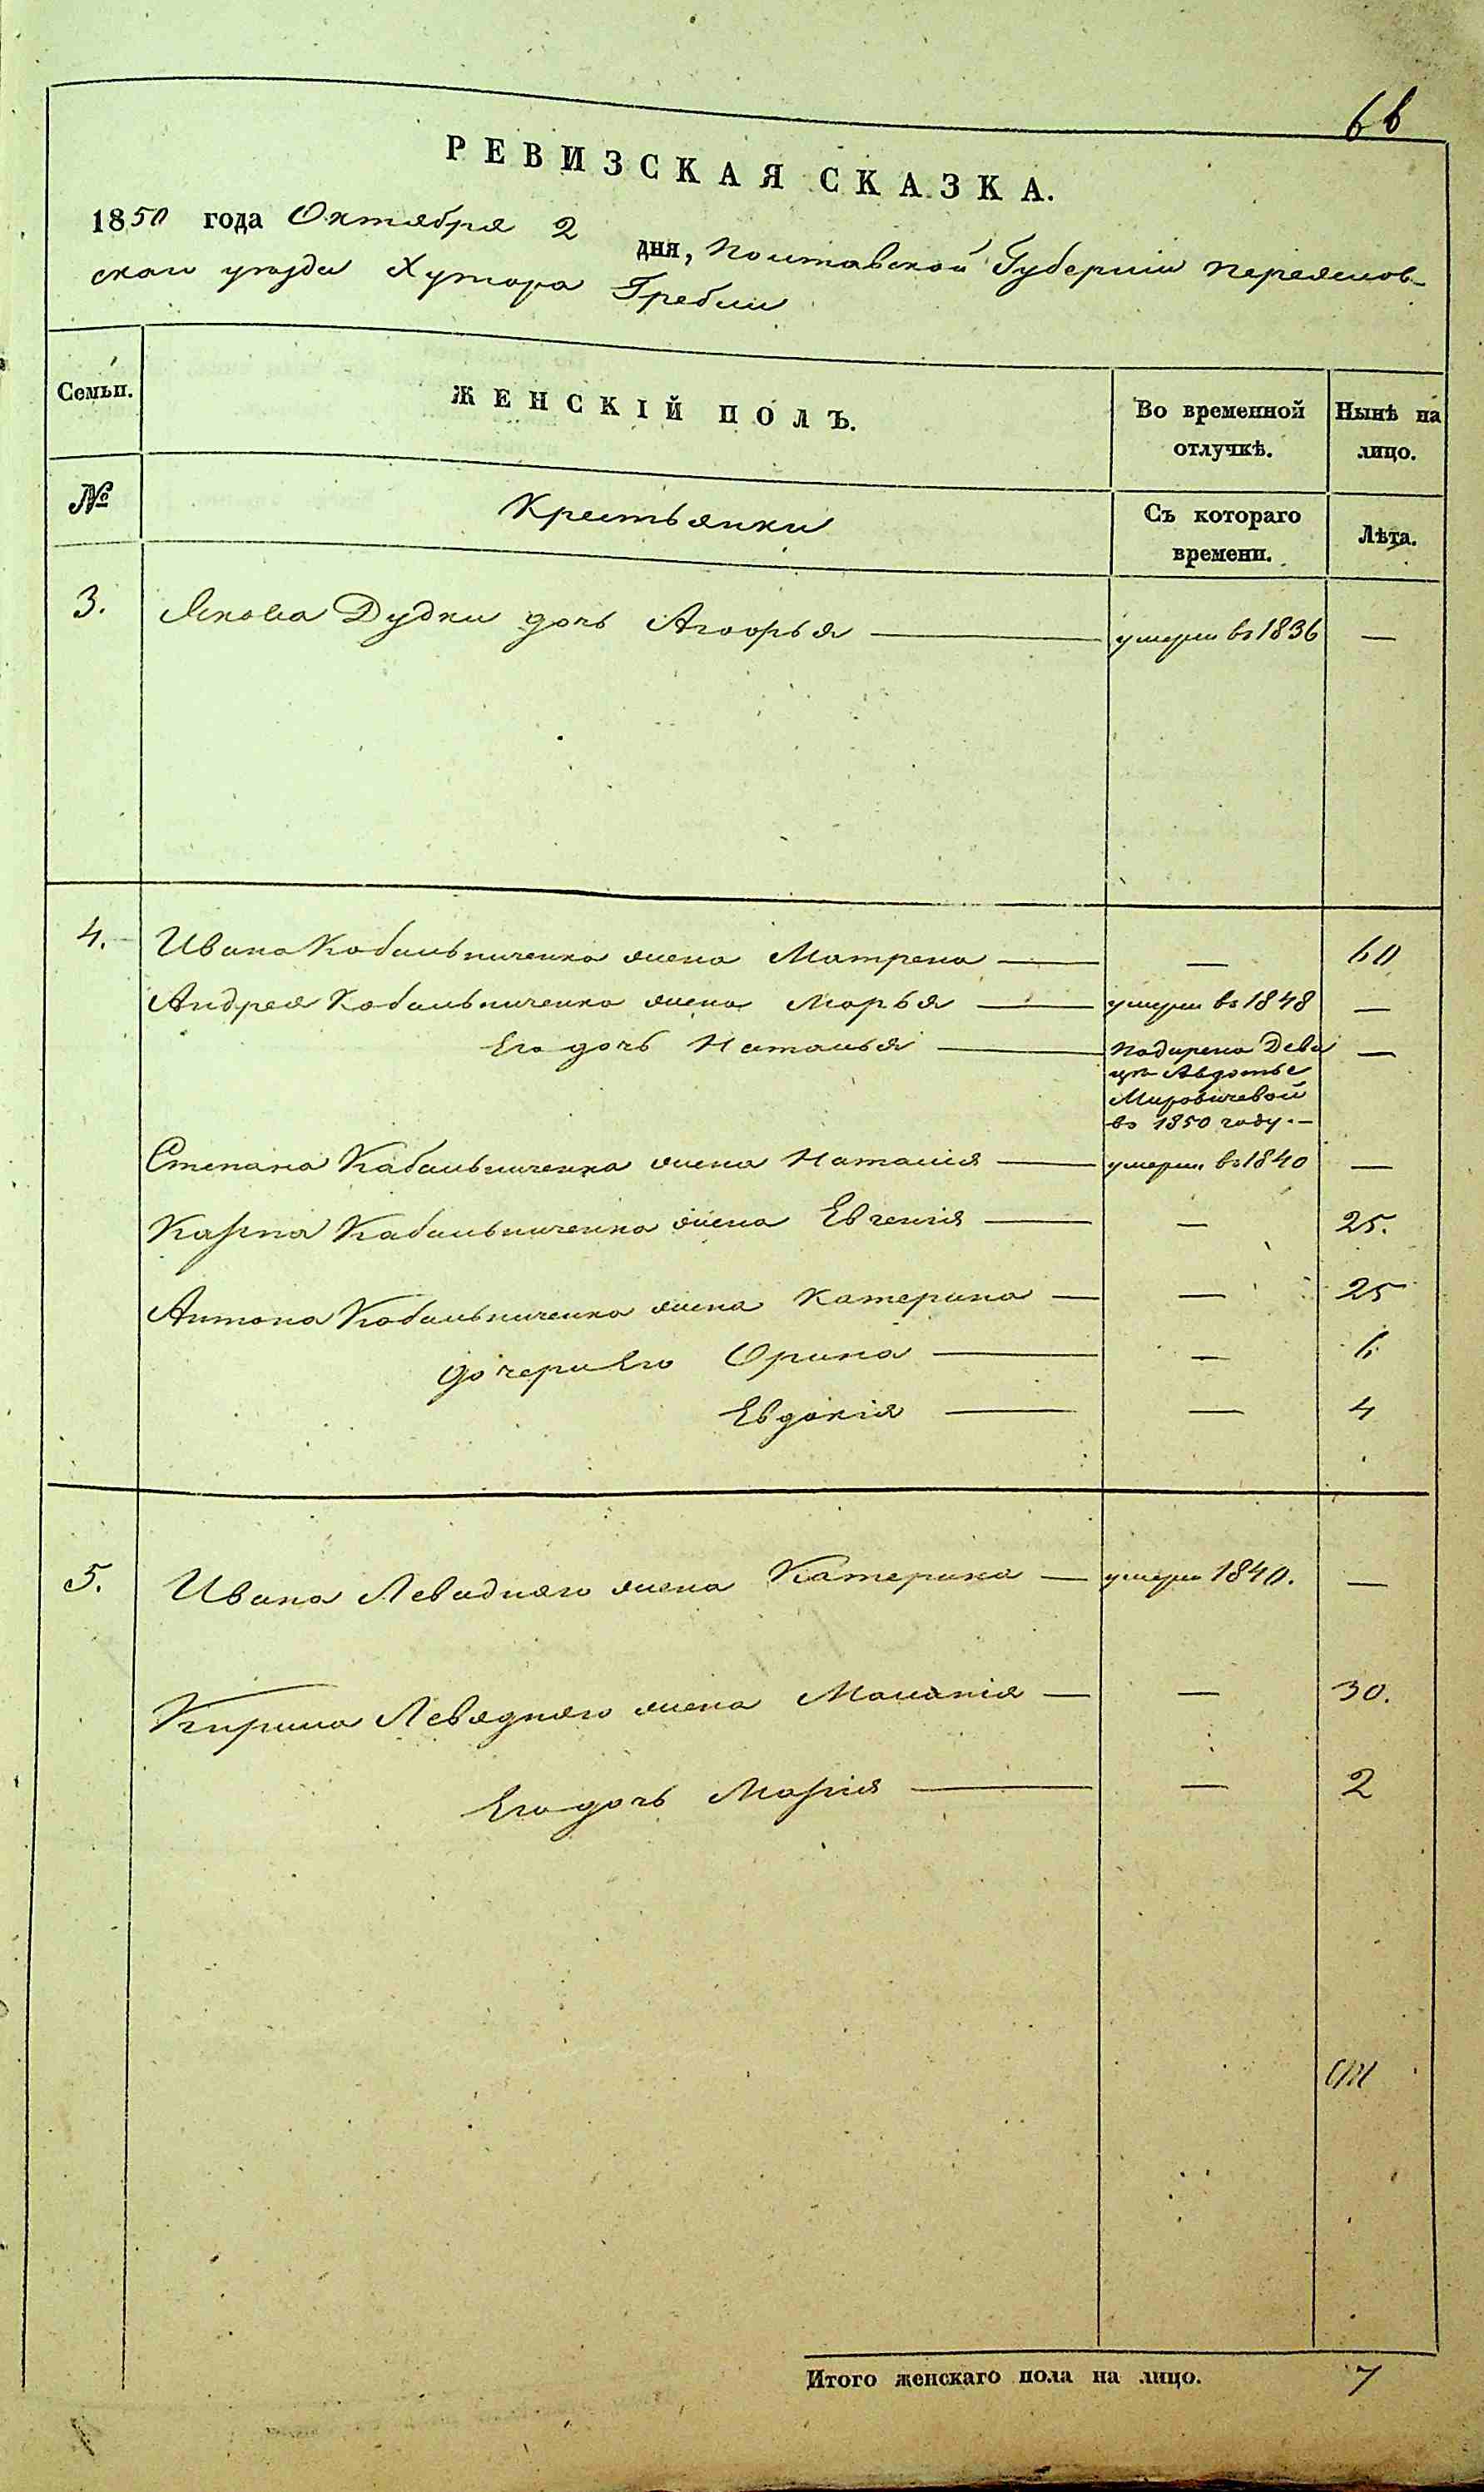 66
РЕВИЗСКАЯ СКАЗКА.
1850 года Октября 2 дня, Полтавской Губерніи Переяслов-
скаго уезда Хутора Гребли
Семьи.
ЖЕНСКІЙ ПОЛЪ.
Во временной отлучкѣ.
Нынѣ на лицо.
№
Крестьянки
Съ котораго времени.
Лѣта.
3. Якова Дудки дочь — умерла въ 1836 —
4. Ивана Кобальниченка жена Матрена — — 60
Андрея Кобальниченка жена Марья — умерла въ 1848 —
Его дочь Наталья — подарена Деви —
це Авдотье
Мировичевой
въ 1850 году. —
Степана Кабальниченка жена Наталия — умерла въ 1840 —
Карпа Кабальниченка жена Евгенія — — 25.
Антона Кобальниченка жена Катерина — — 25
дочери Его Орина — — 6
Евдокія — — 4
5. Ивана Левадняго жена Катерина — умерла 1840. —
Кирила Левадняго жена Маланія — — 30.
Его дочь Марія — — 2
Итого женскаго пола на лицо. 7